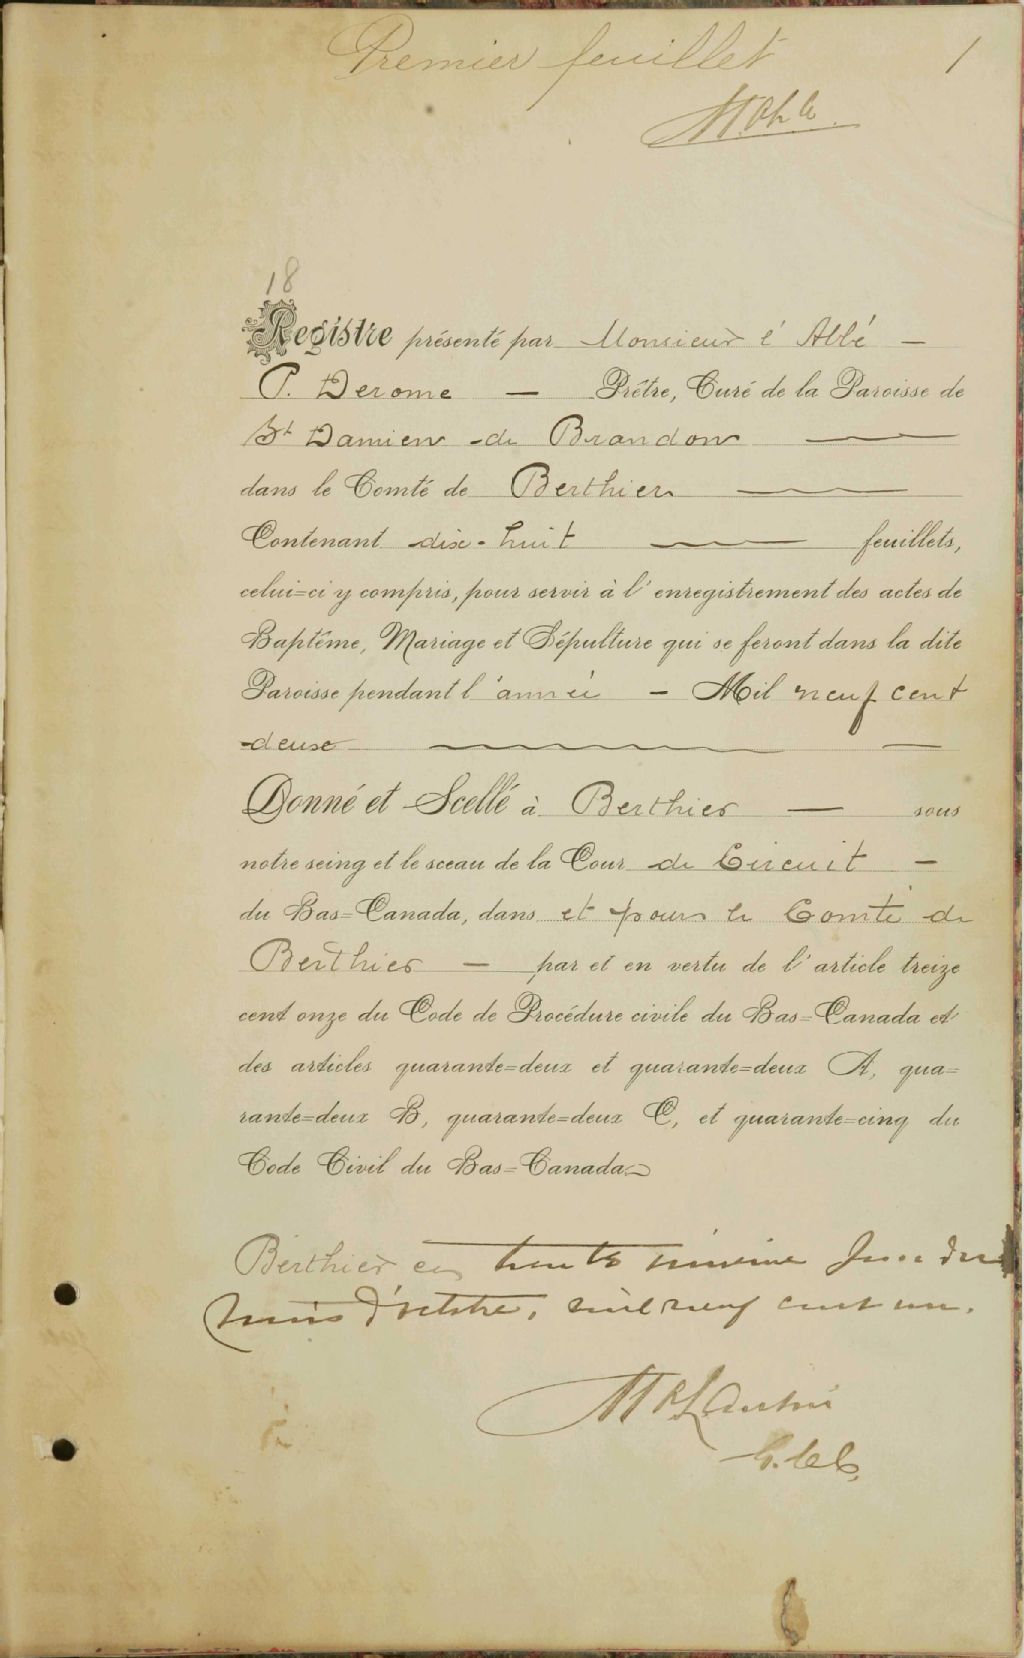 Premier feuillet 1
18
Registre présenté par Monsieur l'Abbé —
P. Derome — Prêtre, Curé de la Paroisse de
St Damien de Brandon —
dans le Comté de Berthier —
Contenant dix-huit — feuillets,
celui=ci y compris, pour servir à l'enregistrement des actes de
Baptême, Mariage et Sépulture qui se feront dans la dite
Paroisse pendant l'année — Mil neuf cent
deux —
Donné et Scellé à Berthier — sous
notre seing et le sceau de la Cour de Circuit —
du Bas=Canada, dans et pour le Comté de
Berthier — par et en vertu de l'article treize
cent onze du Code de Procédure civile du Bas=Canada et
des articles quarante=deux et quarante=deux A, qua=
rante=deux B, quarante=deux C, et quarante=cinq du
Code Civil du Bas=Canada.
Berthier ce jour du
mois d'octobre, mil neuf cent un.